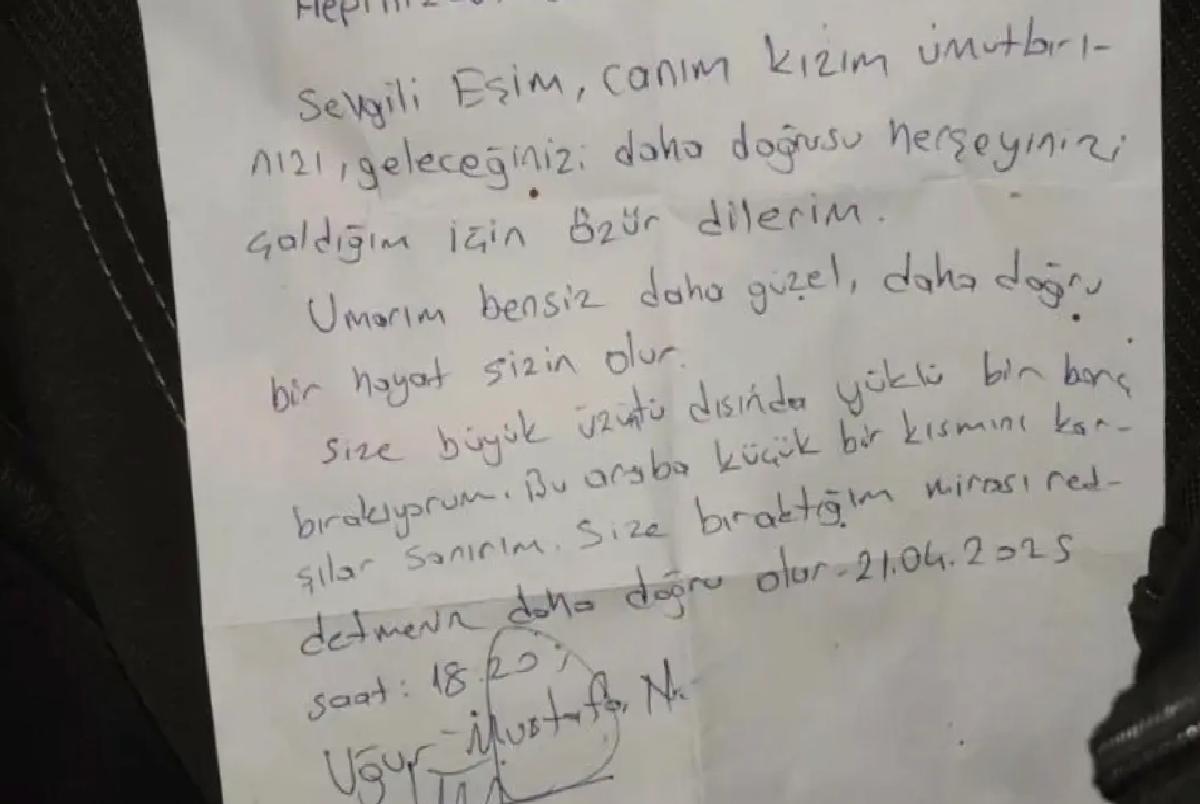 Sevgili Eşim, canım kızım ümutları-
nızı, geleceğinizi daha doğrusu herşeyinizi
çaldığım için özür dilerim.
Umarım bensiz daha güzel, daha doğru
bir hayat sizin olur.
Size büyük üzüntü dışında yüklü bir borç
bırakıyorum. Bu araba küçük bir kısmını kar-
şılar sanırım. Size bıraktığım mirası red-
detmeniz daha doğru olur. 21.04.2025
saat: 18.20
Uğur Mustafa N.